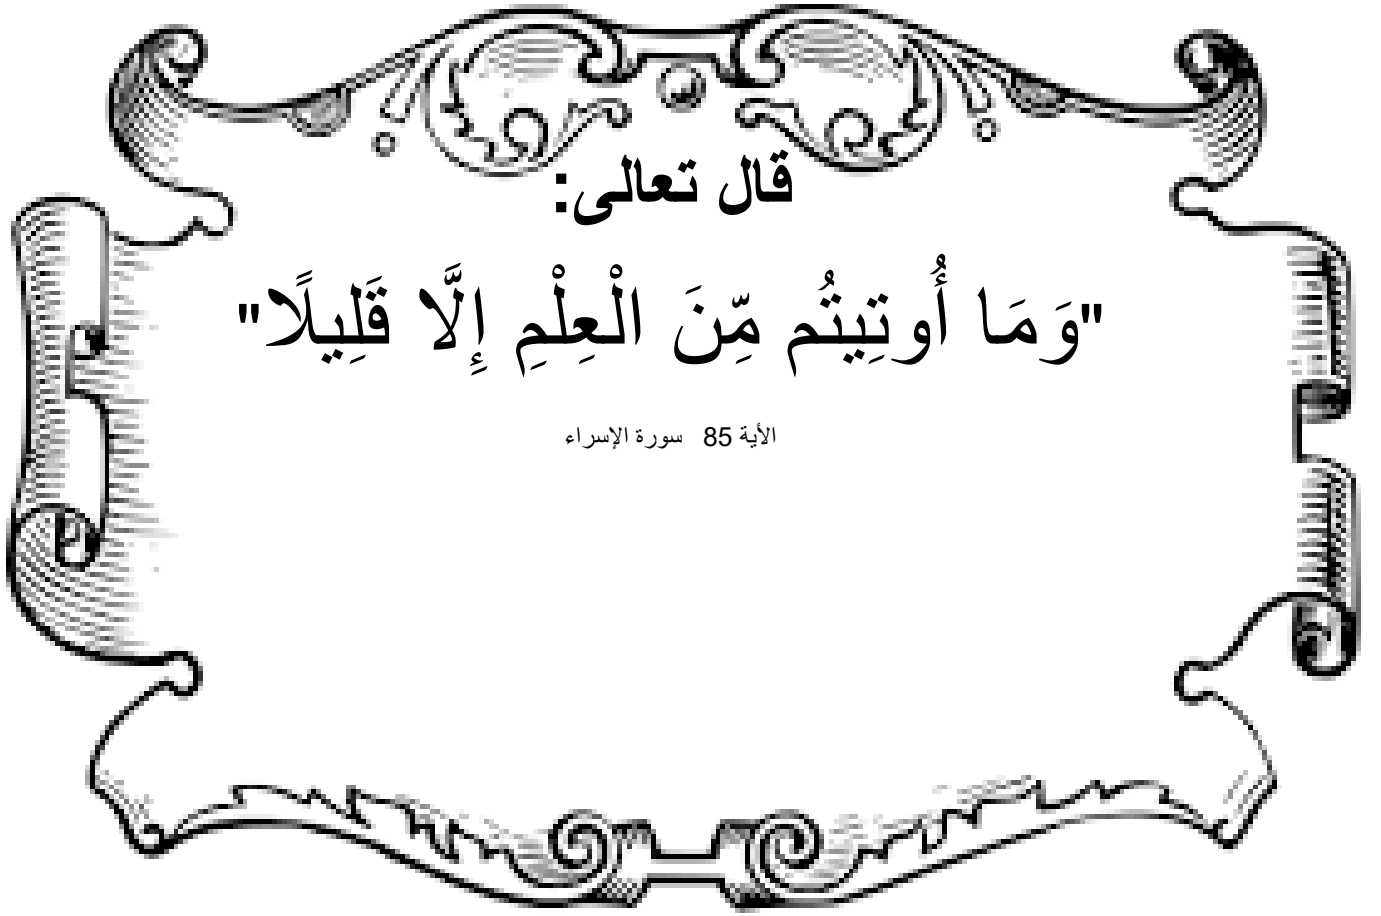 قال تعالى:
"وَمَا أُوتِيتُم مِّنَ الْعِلْمِ إِلَّا قَلِيلًا"
الأية 85 سورة الإسراء